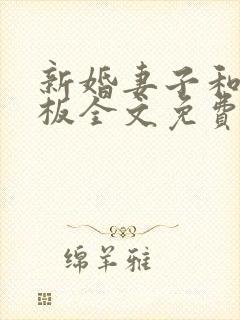 新婚妻子和
板全文免費
绵羊雅